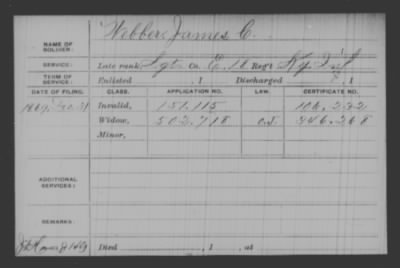 NAME OF SOLDIER: Webber, James C.
SERVICE: Late rank, Sgt Co. E, 18 Reg't Ky Inf
TERM OF SERVICE: Enlisted , 1 Discharged , 1
DATE OF FILING. CLASS. APPLICATION NO. LAW. CERTIFICATE NO.
1869, 31 Invalid, 151.115 106.232
Widow, 502.718 246.268
Minor,
ADDITIONAL SERVICES:
REMARKS:
Died , 1 , at